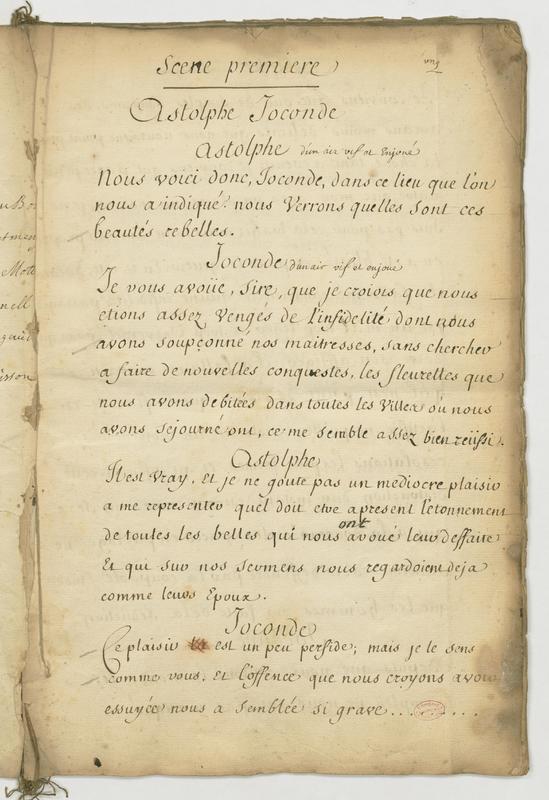 Scene premiere
Astolphe Joconde
Astolphe d'un air vif et Enjoué
Nous voici donc, Joconde, dans ce lieu que l'on
nous a indiqué? nous Verrons quelles sont ces
beautés rebelles.
Joconde d'un air vif et enjoué
Je vous avoüe, Sire, que je croiois que nous
etions assez Vengés de l'infidelité dont nous
avons soupçonné nos maitresses, sans chercher
a faire de nouvelles conquestes, les fleurettes que
nous avons debitées dans toutes les Villes où nous
avons sejourné ont, ce me semble assez bien reüssi.
Astolphe
Il est Vray, Et je ne goute pas un mediocre plaisir
a me representer quel doit etre apresent l'etonnement
de toutes les belles qui nous ont avoué leur deffaite
Et qui sur nos sermens nous regardoient deja
comme leurs Epoux.
Joconde
Ce plaisir est un peu perfide; mais je le sens
comme vous. Et l'offence que nous croyons avoir
essuyée nous a semblée si grave......
u Bo
tmen
Mott
nell
isson